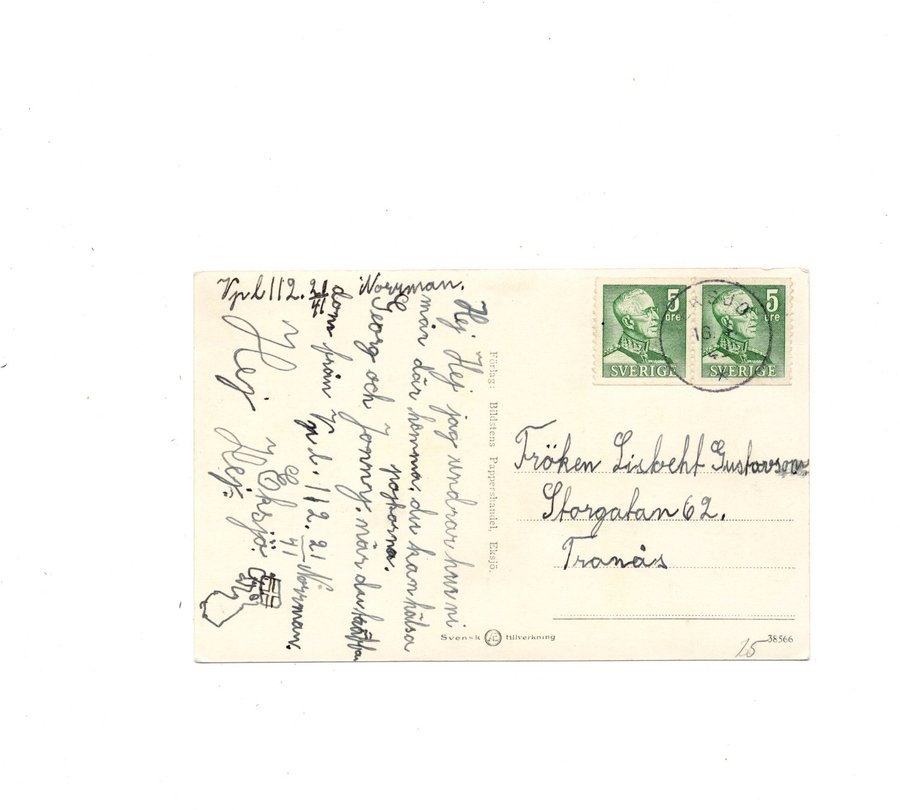 Vpl 112. 21/41 Norrman.
Hej. Hej jag undrar hur ni
mår där hemma. du kan hälsa
pojkarna.
Georg och Jonny. när du träffar
dom från Vpl. 112. 21/41 Norrman.
I Eksjö.
Hej Hej.
Förlag: Bildstens Pappershandel, Eksjö.
5 öre
SVERIGE
5 öre
SVERIGE
16
Fröken Lisbeht Gustavson
Storgatan 62.
Tranås
Svensk Æ tillverkning
38566
15